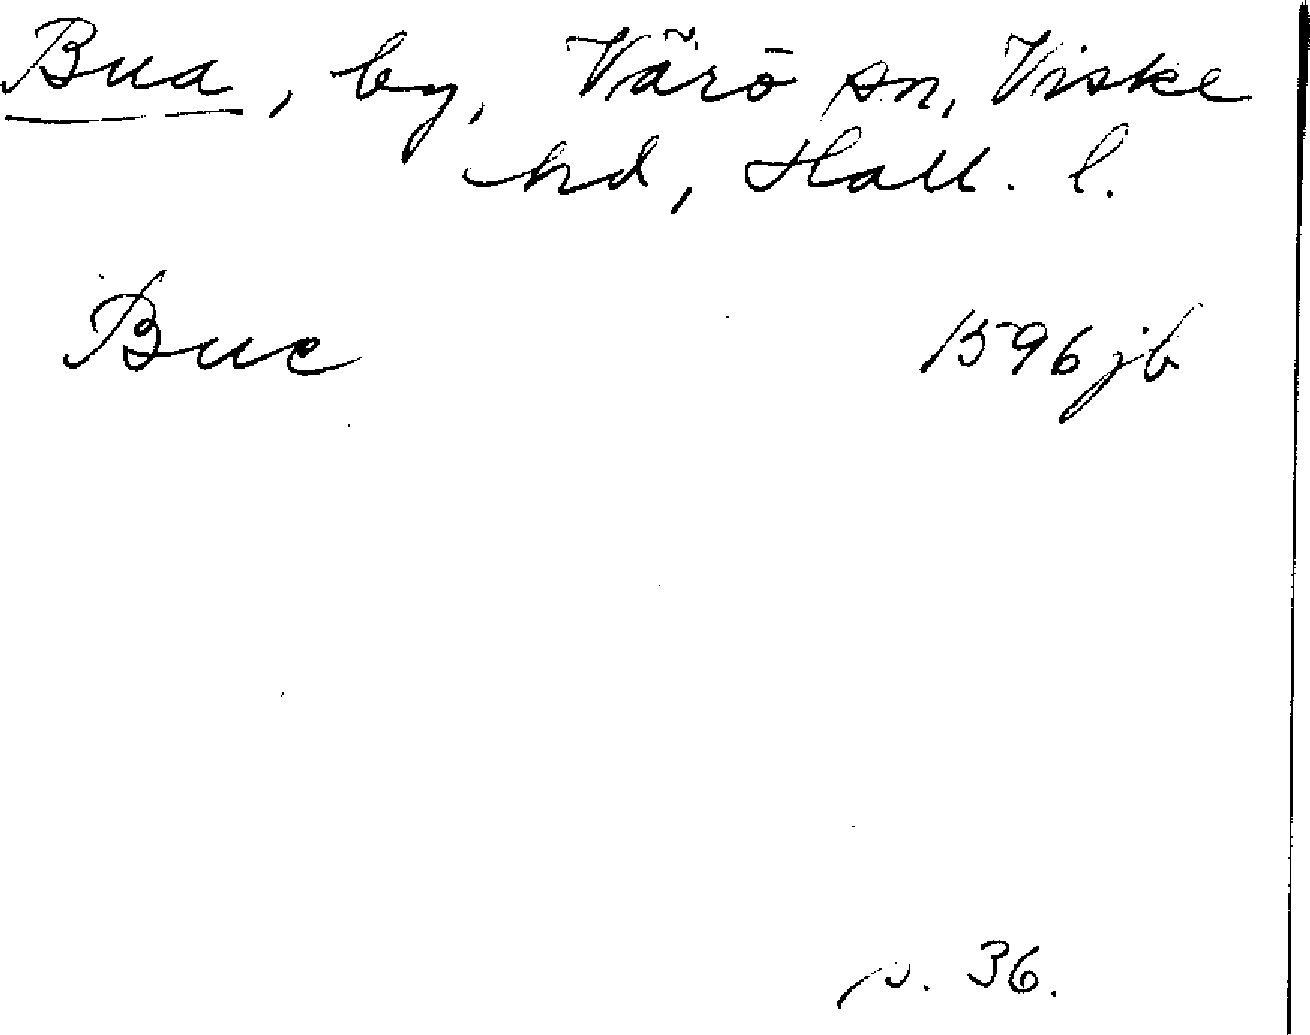 Bua, by, Värö sn, Viske
hd, Hall. l.
Bue 1596 jb
s. 36.